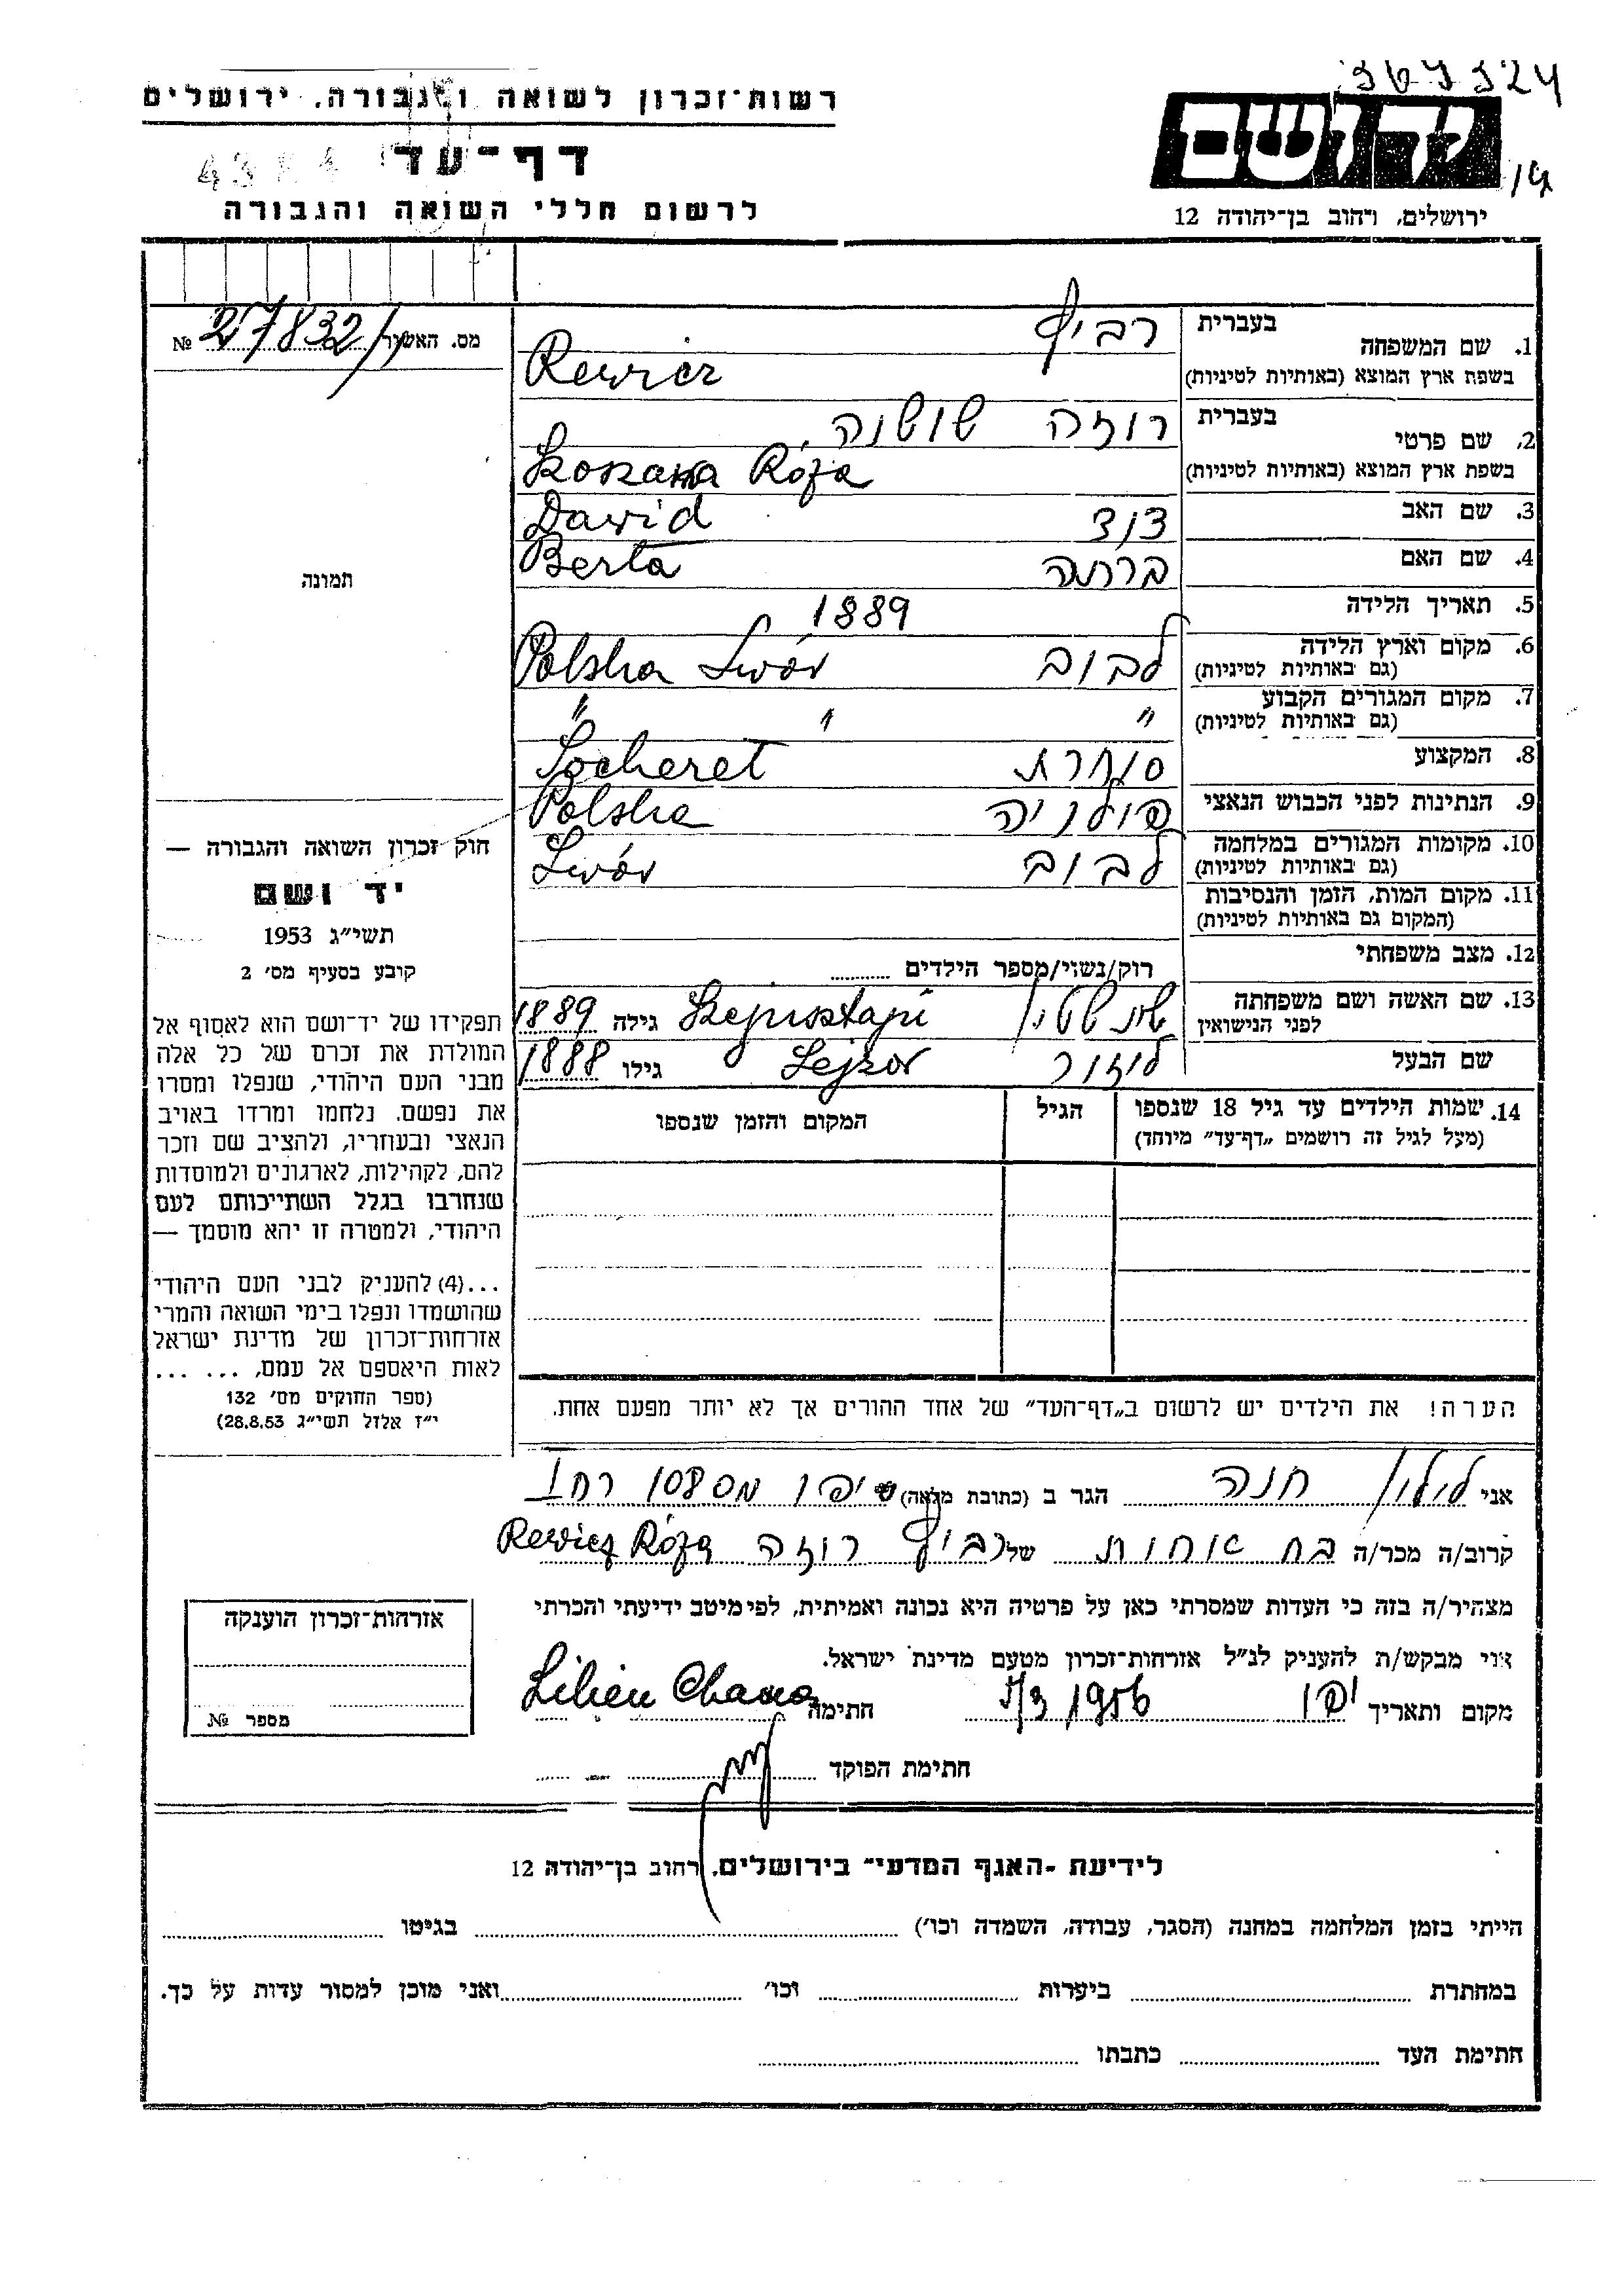 רשות־זכרון לשואה ולגבורה, ירושלים
דף־עד
לרשום חללי השואה והגבורה
יד ושם
ירושלים, רחוב בן־יהודה 12
מס. האשור 27832 №
1. שם המשפחה
בעברית רביץ
בשפת ארץ המוצא (באותיות לטיניות) Rewicz
2. שם פרטי
בעברית רוזה שושנה
בשפת ארץ המוצא (באותיות לטיניות) Szoszana Róża
3. שם האב דוד Dawid
4. שם האם ברתה Berta
5. תאריך הלידה 1889
6. מקום וארץ הלידה לבוב Polska Lwów
(גם באותיות לטיניות)
7. מקום המגורים הקבוע " " "
(גם באותיות לטיניות)
8. המקצוע סוחרת Socheret
9. הנתינות לפני הכבוש הנאצי פולניה Polska
10. מקומות המגורים במלחמה לבוב Lwów
(גם באותיות לטיניות)
11. מקום המות, הזמן והנסיבות
(המקום גם באותיות לטיניות)
12. מצב משפחתי רוק/נשוי/מספר הילדים
13. שם האשה ושם משפחתה
לפני הנישואין גילה 1889
שם הבעל לוזור Lejzor גילו 1888
14. שמות הילדים עד גיל 18 שנספו
(מעל לגיל זה רושמים „דף־עד” מיוחד)
הגיל
המקום והזמן שנספו
הערה! את הילדים יש לרשום ב„דף־העד” של אחד ההורים אך לא יותר מפעם אחת.
תמונה
חוק זכרון השואה והגבורה —
יד ושם
תשי״ג 1953
קובע בסעיף מס׳ 2
תפקידו של יד־ושם הוא לאסוף אל
המולדת את זכרם של כל אלה
מבני העם היהודי, שנפלו ומסרו
את נפשם, נלחמו ומרדו באויב
הנאצי ובעוזריו, ולהציב שם וזכר
להם, לקהילות, לארגונים ולמוסדות
שנחרבו בגלל השתייכותם לעם
היהודי, ולמטרה זו יהא מוסמך —
...(4) להעניק לבני העם היהודי
שהושמדו ונפלו בימי השואה והמרי
אזרחות־זכרון של מדינת ישראל
לאות היאספם אל עמם, ... ...
(ספר החוקים מס׳ 132
י״ז אלול תשי״ג 28.8.53)
אני לילין חנה הגר ב (כתובת מלאה) יפו
קרוב/ה מכר/ה בת אחות של רביץ רוזה Rewicz Róża
מצהיר/ה בזה כי העדות שמסרתי כאן על פרטיה היא נכונה ואמיתית, לפי מיטב ידיעתי והכרתי
אני מבקש/ת להעניק לנ״ל אזרחות־זכרון מטעם מדינת ישראל.
מקום ותאריך יפו 5/3 1956 חתימה Lilien Chana
חתימת הפוקד
אזרחות־זכרון הוענקה
מספר №
לידיעת ״האגף המדעי״ בירושלים, רחוב בן־יהודה 12
הייתי בזמן המלחמה במחנה (הסגר, עבודה, השמדה וכו׳) בגיטו
במחתרת ביערות וכו׳ ואני מוכן למסור עדות על כך.
חתימת העד כתבתו